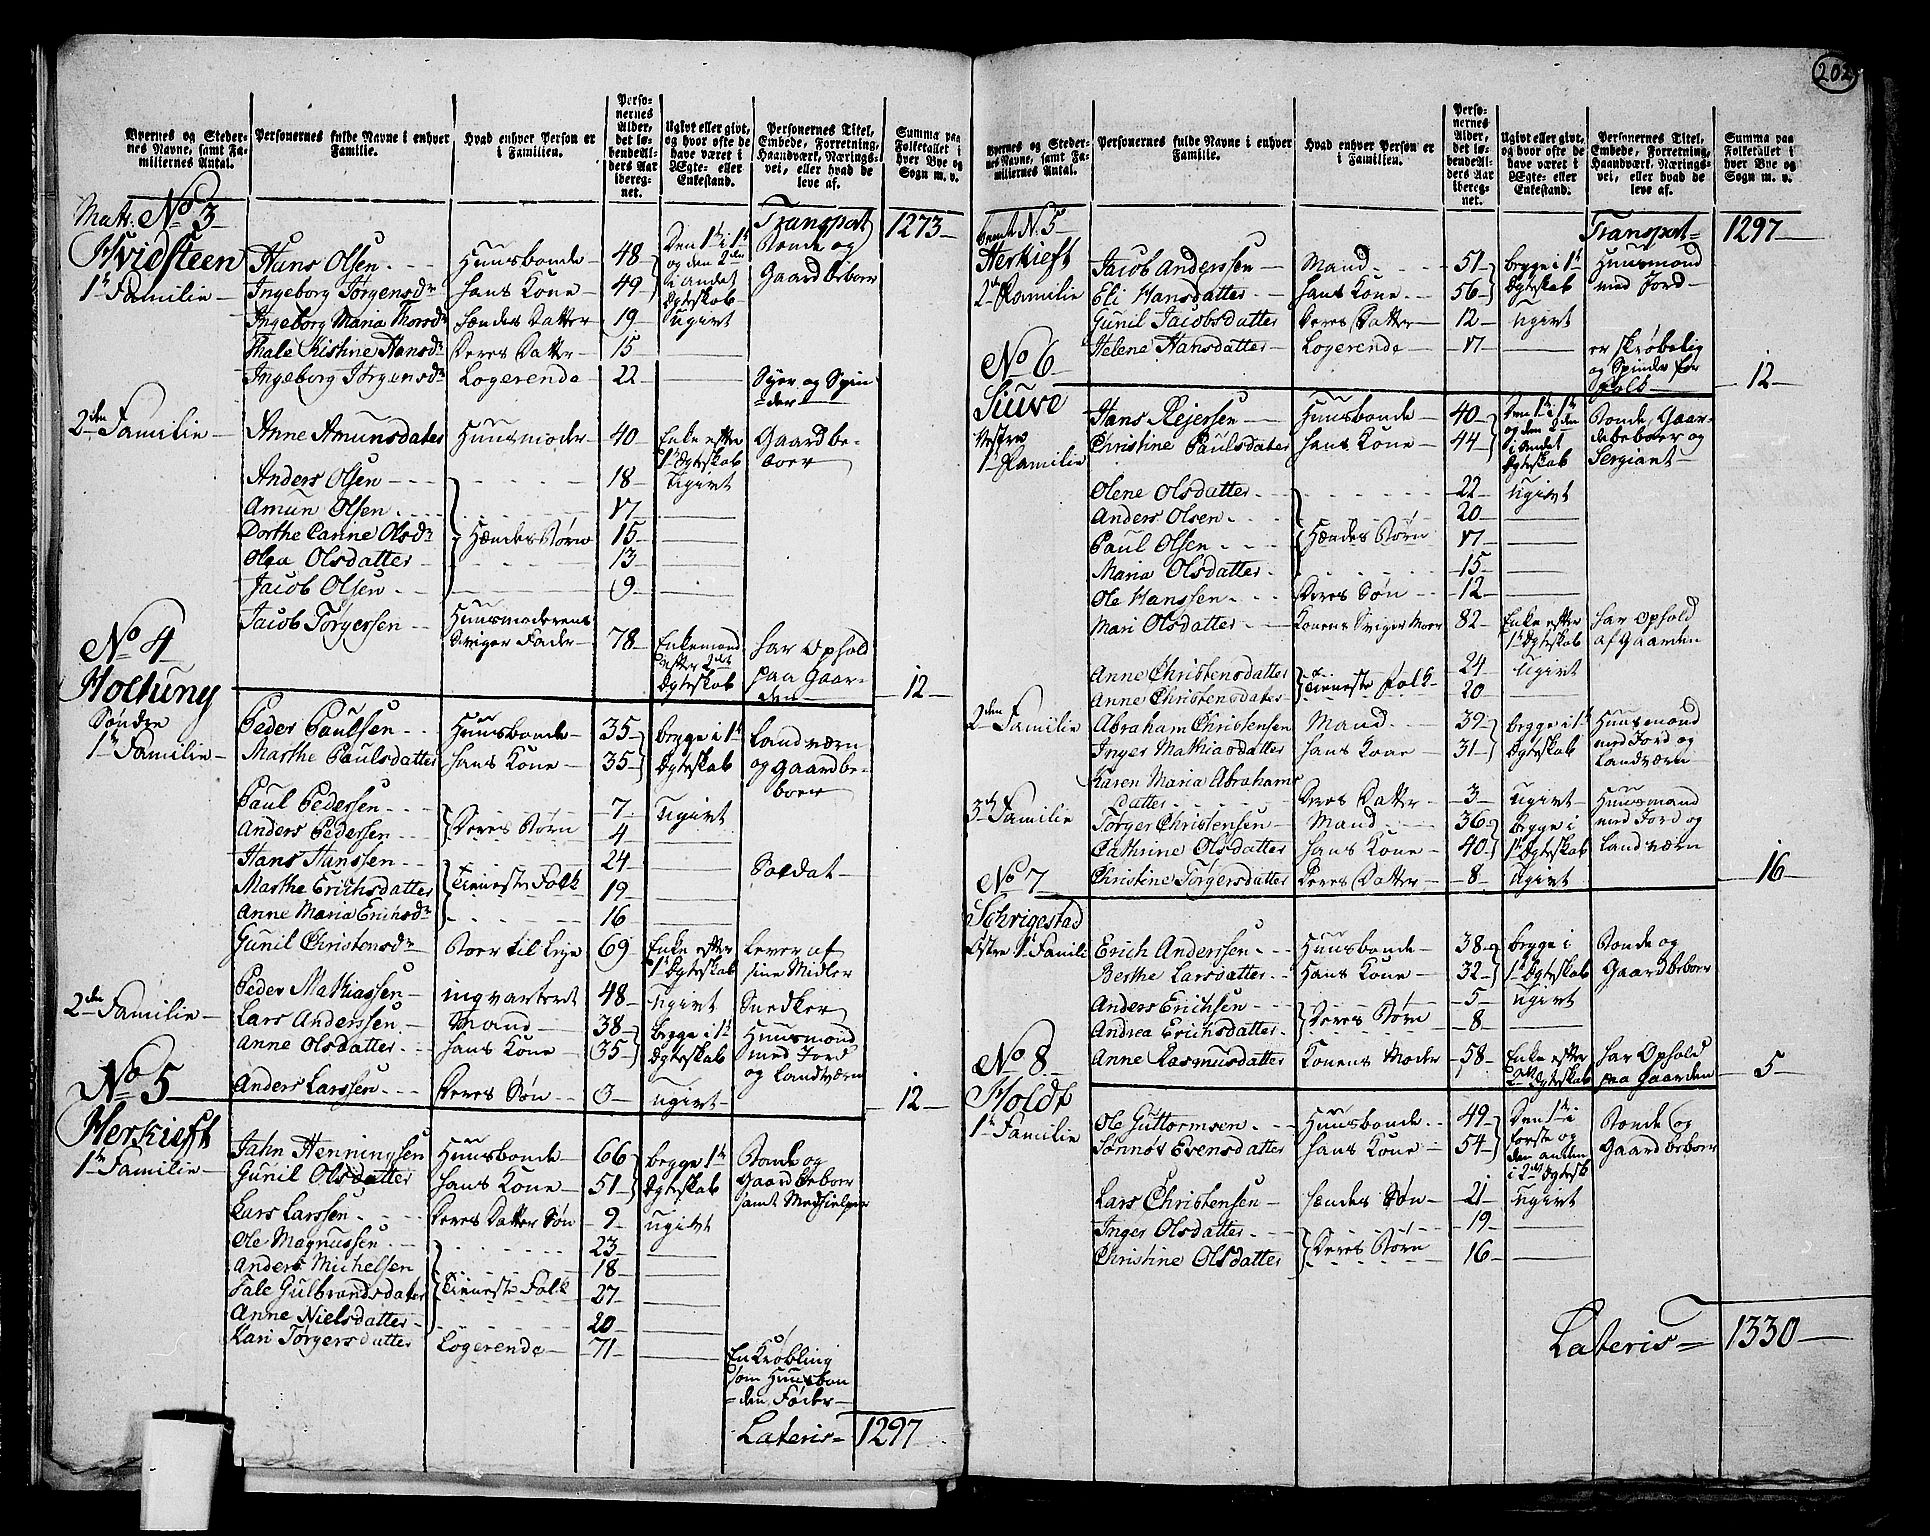 202
Byernes og Stedernes Navne, samt Familiernes Antal. | Personernes fulde Navne i enhver Familie. | Hvad enhver Person er i Familien. | Personernes Alder, det løbende Alders Aar iberegnet. | Ugivt eller givt, og hvor ofte de have været i Ægte- eller Enkestand. | Personernes Titel, Embede, Forretning, Haandværk, Næringsvei, eller hvad de leve af. | Summa paa Folketallet i hver Bye og Sogn m. v.
Transport 1273
Matr. No 3
Hvidsteen
1te Familie
Hans Olsen Huusbonde 48 Den 1te i 1te og den 2den i andet Ægteskab Bonde og Gaardbeboer
Ingeborg Jørgensdr hans Kone 49
Ingeborg Maria Morsdr hendes Datter 19 ugivt
Thale Kistine Hansdr Deres Datter 15
Ingeborg Jørgensdr Logerende 22 Syer og Spinder
2den Familie
Anne Amunsdater Huusmoder 40 Enke efter 1te Ægteskab Gaardbeboer
Anders Olsen 18 Ugivt
Amun Olsen 17
Dorthe Canine Olsdr Hendes Børn 15
Olea Olsdatter 13
Jacob Olsen 9
Jacob Törgersen Huusmoderens Sviger Fader 78 Enkemand efter 2det Ægteskab har Ophold paa Gaarden 12
No 4
Holtung
Søndre
1te Familie
Peder Paulsen Huusbonde 35 begge i 1te Ægteskab Landværn og Gaardbeboer
Marthe Paulsdatter hans Kone 35
Paul Pedersen 7 Ugivt
Anders Pedersen Deres Børn 4
Hans Hanssen 24 Soldat
Marthe Erichsdatter Tieneste Folk 19
Anne Maria Erichsdr 16
Gunil Christensdr Boer til Leje 69 Enke efter 1te Ægteskab Lever af sine Midler
Peder Mathiassen ingvarteret 48 Ugivt Snedker
2den Familie
Lars Anderssen Mand 38 begge i 1te Ægteskab Huusmand med Jord og Landværn
Anne Olsdatter hans Kone 35
Anders Larssen Deres Søn 3 ugivt 12
No 5
Herkieft
1te Familie
Jahn Henningsen Huusbonde 66 begge 1te Ægteskab Bonde og Gaard Beboer samt Medhielper
Gunil Olsdatter hans Kone 51
Lars Larssen Deres Datter Søn 9 ugivt
Ole Magnussen 23
Anders Michelsen 18
Tale Gulbrandsdater Tieneste Folk 27
Anne Nielsdatter 20
Kari Törgersdatter Logerende 71 En Krøbling som Huusbonden Føder
Lateris 1297
Byernes og Stedernes Navne, samt Familiernes Antal. | Personernes fulde Navne i enhver Familie. | Hvad enhver Person er i Familien. | Personernes Alder, det løbende Alders Aar iberegnet. | Ugivt eller givt, og hvor ofte de have været i Ægte- eller Enkestand. | Personernes Titel, Embede, Forretning, Haandværk, Næringsvei, eller hvad de leve af. | Summa paa Folketallet i hver Bye og Sogn m. v.
Transport 1297
bemt N. 5
Herkieft
2den Familie
Jacob Anderssen Mand 51 begge i 1te Ægteskab Huusmand med Jord
Eli Hansdatter hans Kone 56
Gunil Jacobsdatter Deres Datter 12 ugivt
Helene Hansdatter Logerende 17 er skrøbelig og Spinder for folk 12
No 6
Siuve
Vestre
1te Familie
Hans Rejersen Huusbonde 40 Den 1te i 1te og den 2den i andet Ægteskab Bonde, Gaardebeboer og Sergiant
Christine Paulsdater hans Kone 44
Olene Olsdatter 22 ugivt
Anders Olsen 20
Paul Olsen Hendes Børn 17
Maria Olsdatter 15
Ole Hanssen Deres Søn 12
Mari Olsdatter Konens Sviger Moer 82 Enke efter 1te Ægteskab har Ophold af Gaarden
Anne Christensdatter 24 ugivt
Anne Christensdater Tieneste folk 20
2den Familie
Abraham Christensen Mand 39 begge i 1te Ægteskab Huusmand med Jord og Landværn
Inger Mathiasdatter hans Kone 31
Karen Maria Abrahams datter Deres Datter 3 ugivt
3die Familie
Törger Christensen Mand 36 begge i 1te Ægteskab Huusmand med Jord og Landværn
Cathrine Olsdatter hans Kone 40
Christine Törgersdatter Deres Datter 8 ugivt 16
No 7
Schrigestad
Østre 1te Familie
Erich Anderssen Huusbonde 38 begge i 1te Ægteskab Bonde og Gaardbeboer
Berthe Larsdatter Hans Kone 32
Anders Erichsen 5 ugivt
Andrea Erichsdatter Deres Børn 8
Anne Rasmusdatter Konens Moder 58 Enke efter 2det Ægteskab har Ophold paa Gaarden 5
No 8
Holdt
1te Familie
Ole Guttormsen Huusbonde 49 Den 1te i første og den anden i 2det Ægtesk. Bonde og Gaardbeboer
Sønnøt Evensdatter hans Kone 54
Lars Christensen hendes Søn 21 ugivt
Inger Olsdatter 19
Christine Olsdatter Deres Børn 16
Lateris 1330